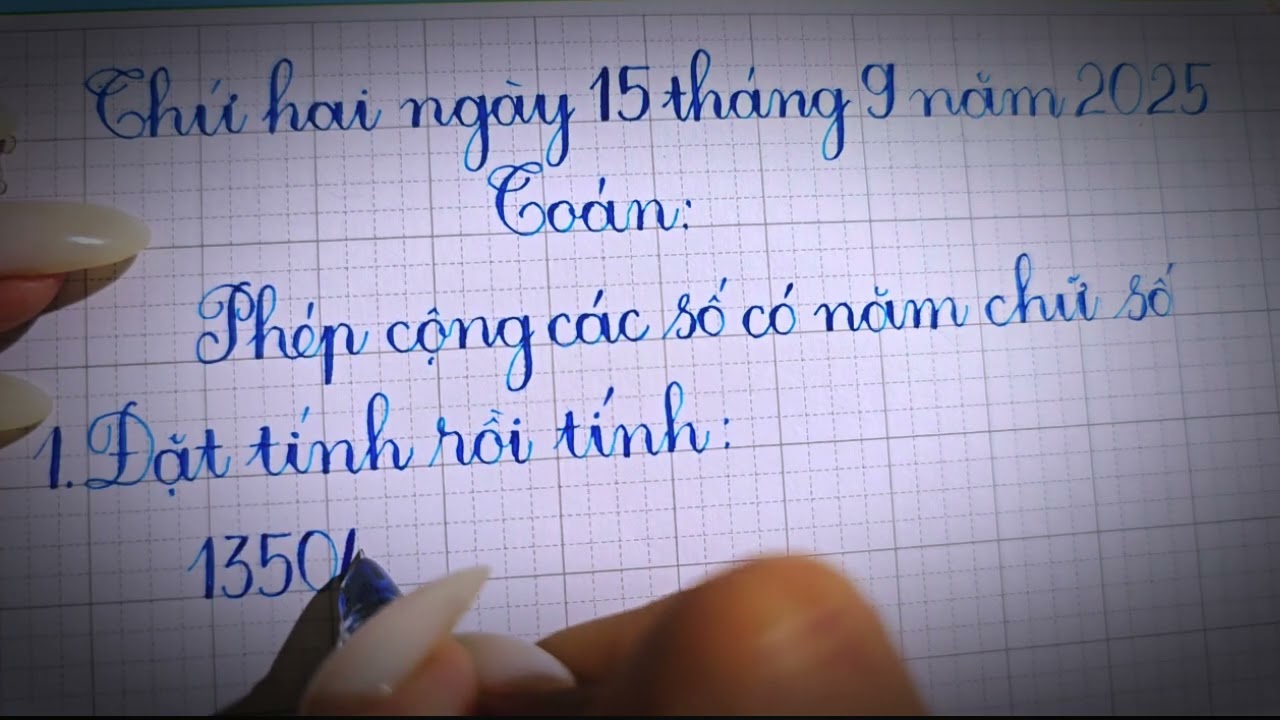 Thứ hai ngày 15 tháng 9 năm 2025
Toán:
Phép cộng các số có năm chữ số
1. Đặt tính rồi tính:
1350